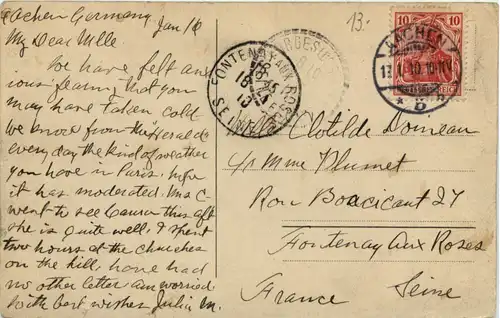 Aachen Germany
Jan 10
My Dear Mlle
We have felt anx
ious fearing that you
may have taken cold
we know from the Herald
every day the kind of weather
you have in Paris. hope
it has moderated. Mrs C
went to see Laura this aft
she is quite well. I spent
two hours at the churches
on the hill, have had
no other letter. am worried
With best wishes Julia M.
13.
10 10
AACHEN
13.1.10.
FONTENAY AUX ROSES
SEINE
Mlle Clotilde Domeau
c/o Mme Plumet
Rou Boucicaut 27
Fontenay Aux Roses
Seine
France